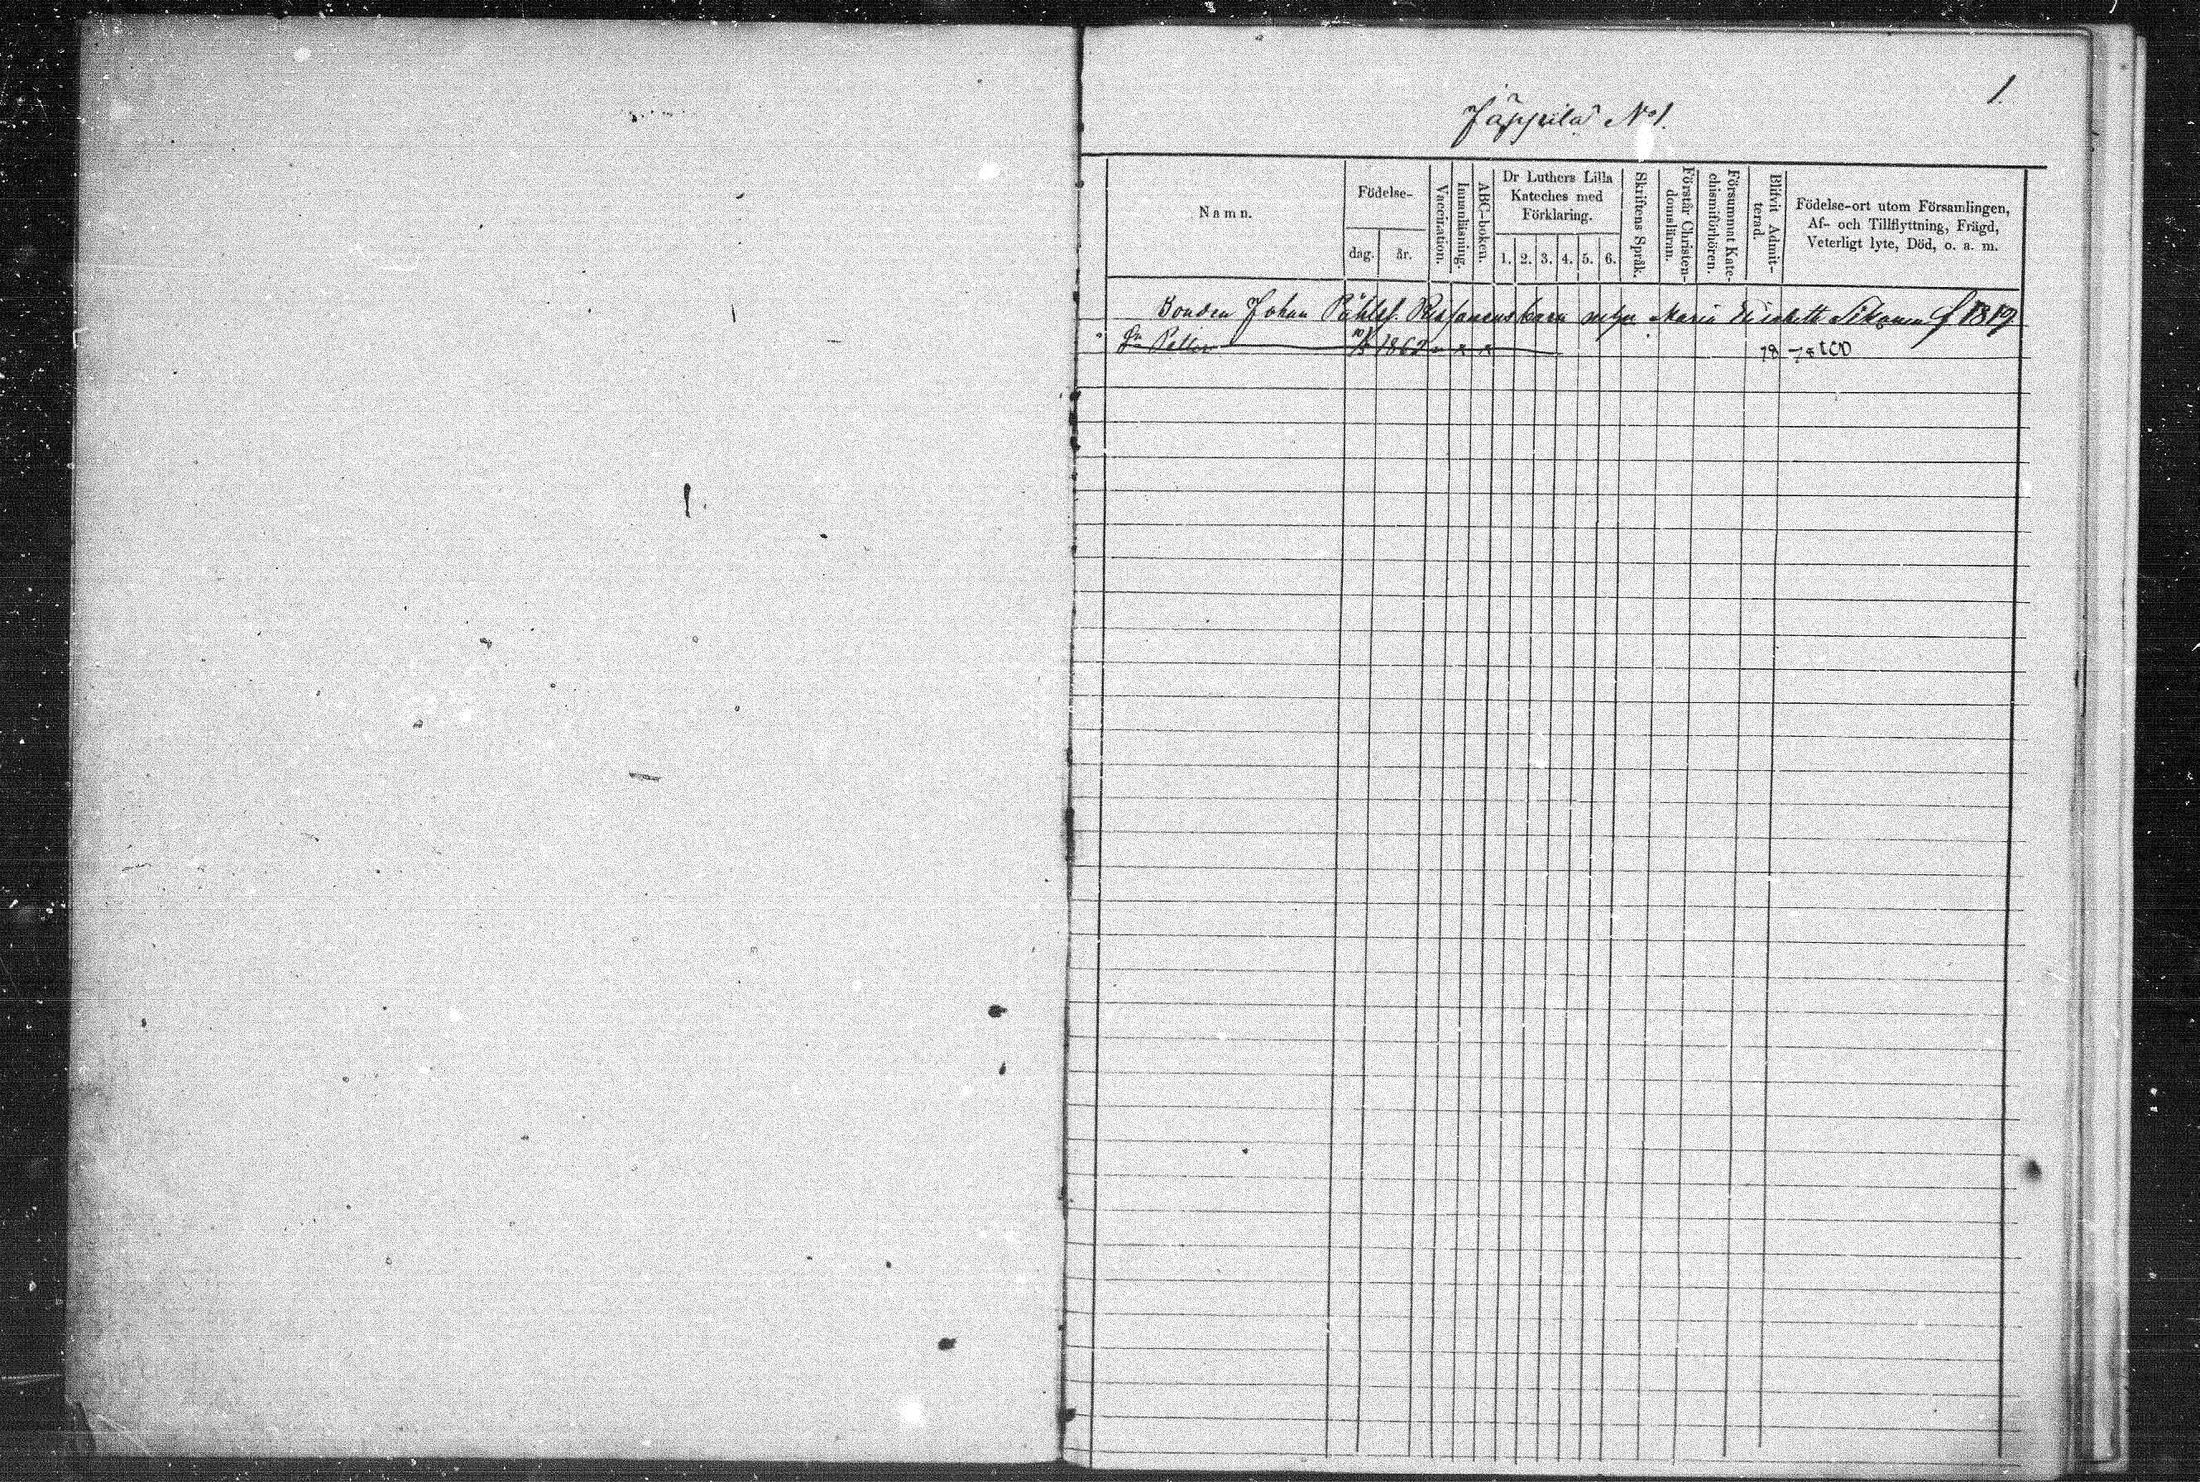 1.
Jäppilä No 1.
Namn.
Födelse-
dag.
år.
Vaccination.
Innanläsning.
ABC-boken.
Dr Luthers Lilla
Kateches med
Förklaring.
1. 2. 3. 4. 5. 6.
Skriftens Språk.
Förstår Christen-
domsläran.
Försummat Kate-
chismiförhören.
Blifvit Admit-
terad.
Födelse-ort utom Församlingen,
Af- och Tillflyttning, Frägd,
Veterligt lyte, Död, o. a. m.
Bonden Johan Påhlsf. barn Maria Elisabeth f 1819
Sn Petter 1862 x x 78